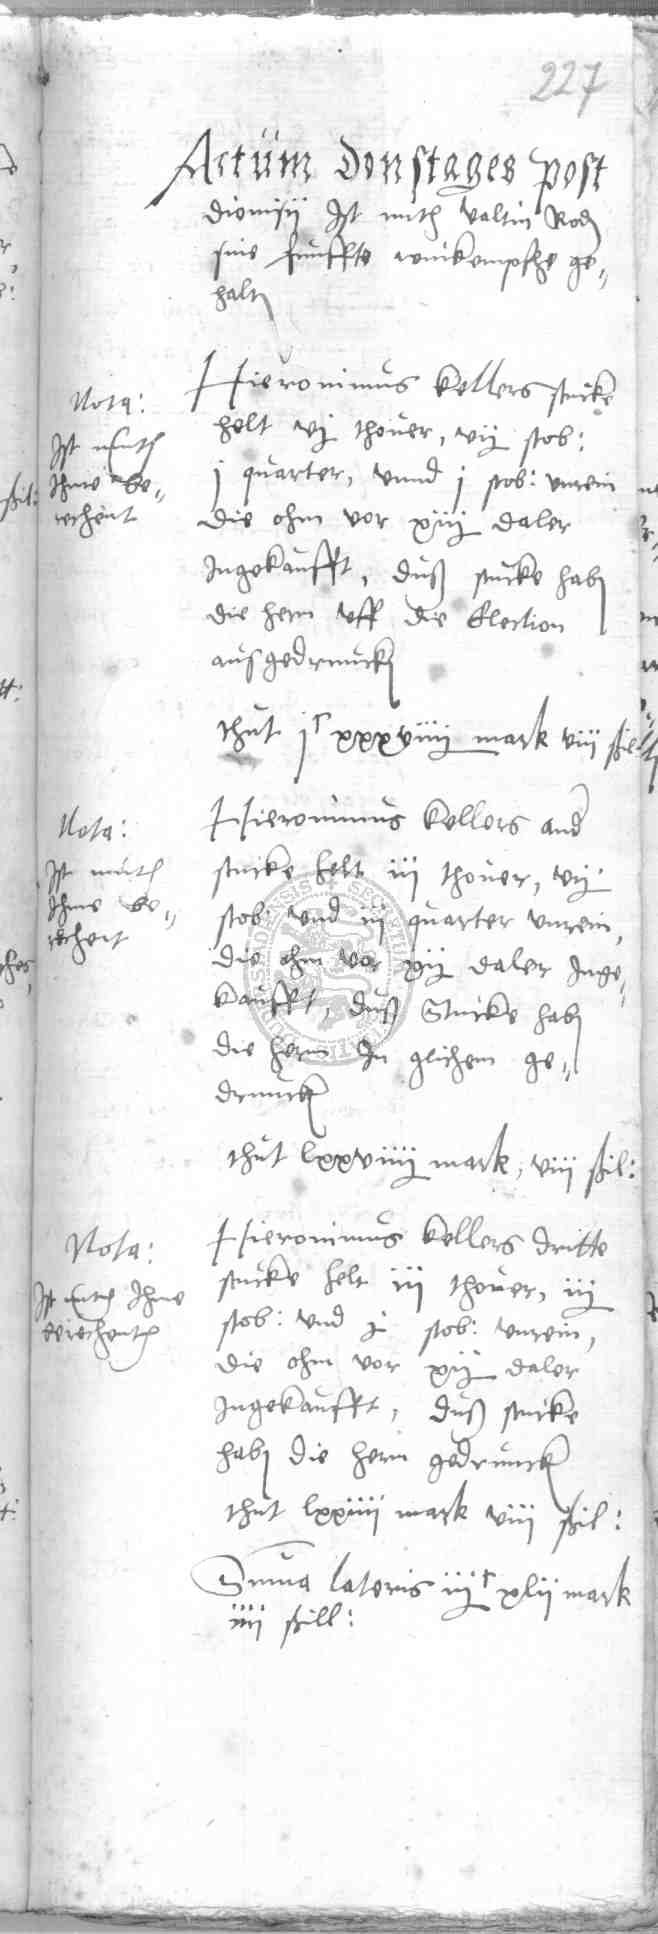 227
Actum donstages post
dionisij Ist mith Valtin Rodn
sine funffte winkempfhe ge„
haltn
Nota:
Ist mith
Ihme be„
rechent
Hieronimus kellers stucke
helt vj thoner, vij stob:
j quarter, vnnd j stob: vnrein
die ohm vor xiij daler
Ingekaufft, duß stucke habn
die hern vff die Election
ausgedrunckn
thut jc xxxviiij mark viii ßil:
Nota:
Ist mith
Ihme be„
rechent
Hieronimus kellers and
stucke helt iii thoner, vij
stob: vnd iij quarter vnrein,
die ohm vor xij daler Inge„
kaufft, duß Stucke habn
die hern In glichem ge„
drunckn
thut lxxviiij mark, viii ßil:
Nota:
Ist mith Ihme
berechent
Hieronimus kellers dritte
stucke helt iii thoner, iij
stob: vnd j stob: vnrein,
die ohm vor xij daler
Ingekaufft, duß stucke
habn die hern gedrunckn
thut lxxiiii mark viii ßil:
Summa lateris ijc xlij mark
iiii ßill: